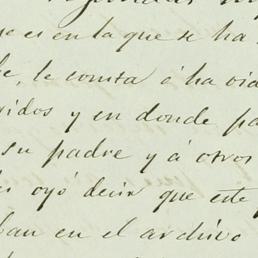 es en la que se ha
le consta ó ha oido
y en donde
su padre y á otros
oyó decir que este
ban en el archivo